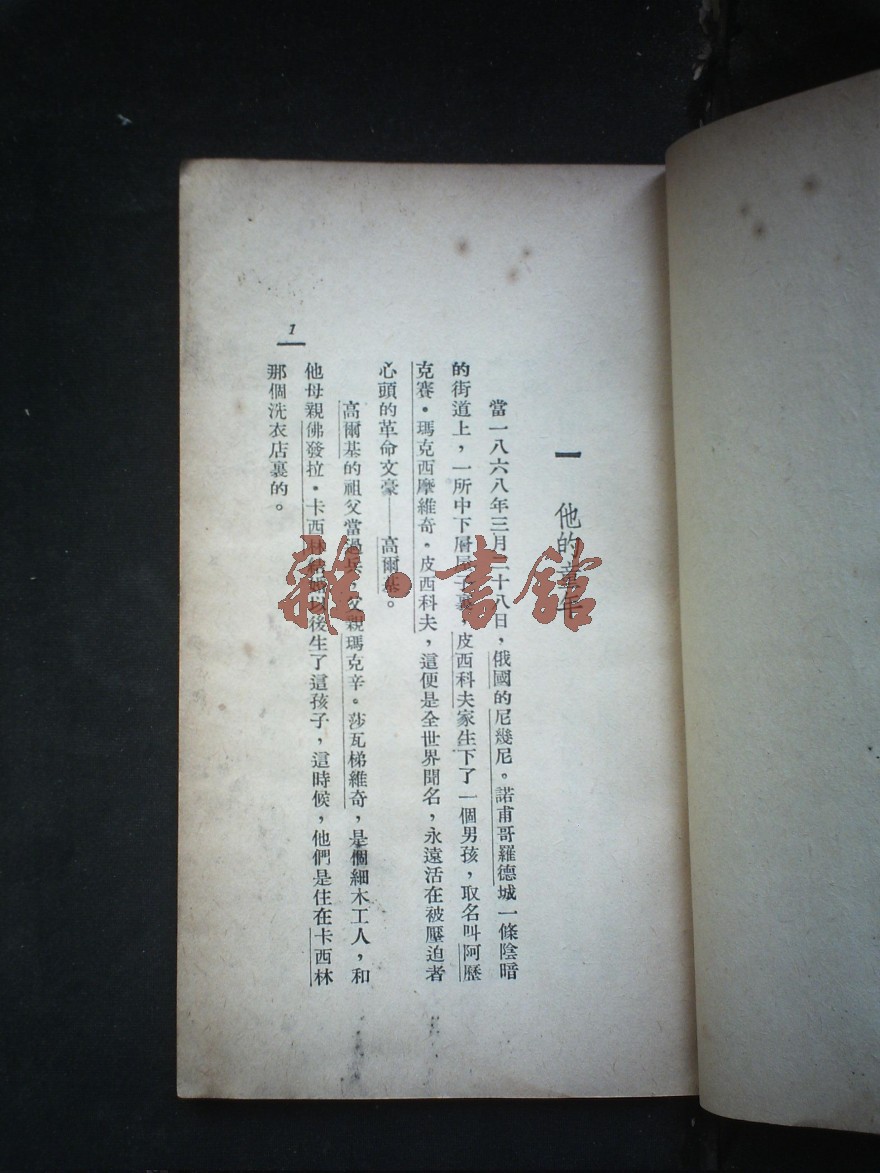 一 他的童年
當一八六八年三月二十八日，俄國的尼幾尼。諾甫哥羅德城一條陰暗
的街道上，一所中下層屋子裏，皮西科夫家生下了一個男孩，取名叫阿歷
克賽・瑪克西摩維奇・皮西科夫，這便是全世界聞名，永遠活在被壓迫者
心頭的革命文豪——高爾基。
高爾基的祖父當過兵，父親瑪克辛。莎瓦梯維奇，是個細木工人，和
他母親佛發拉・卡西林結婚以後生了這孩子，這時候，他們是住在卡西林
那個洗衣店裏的。
1
雜・書館